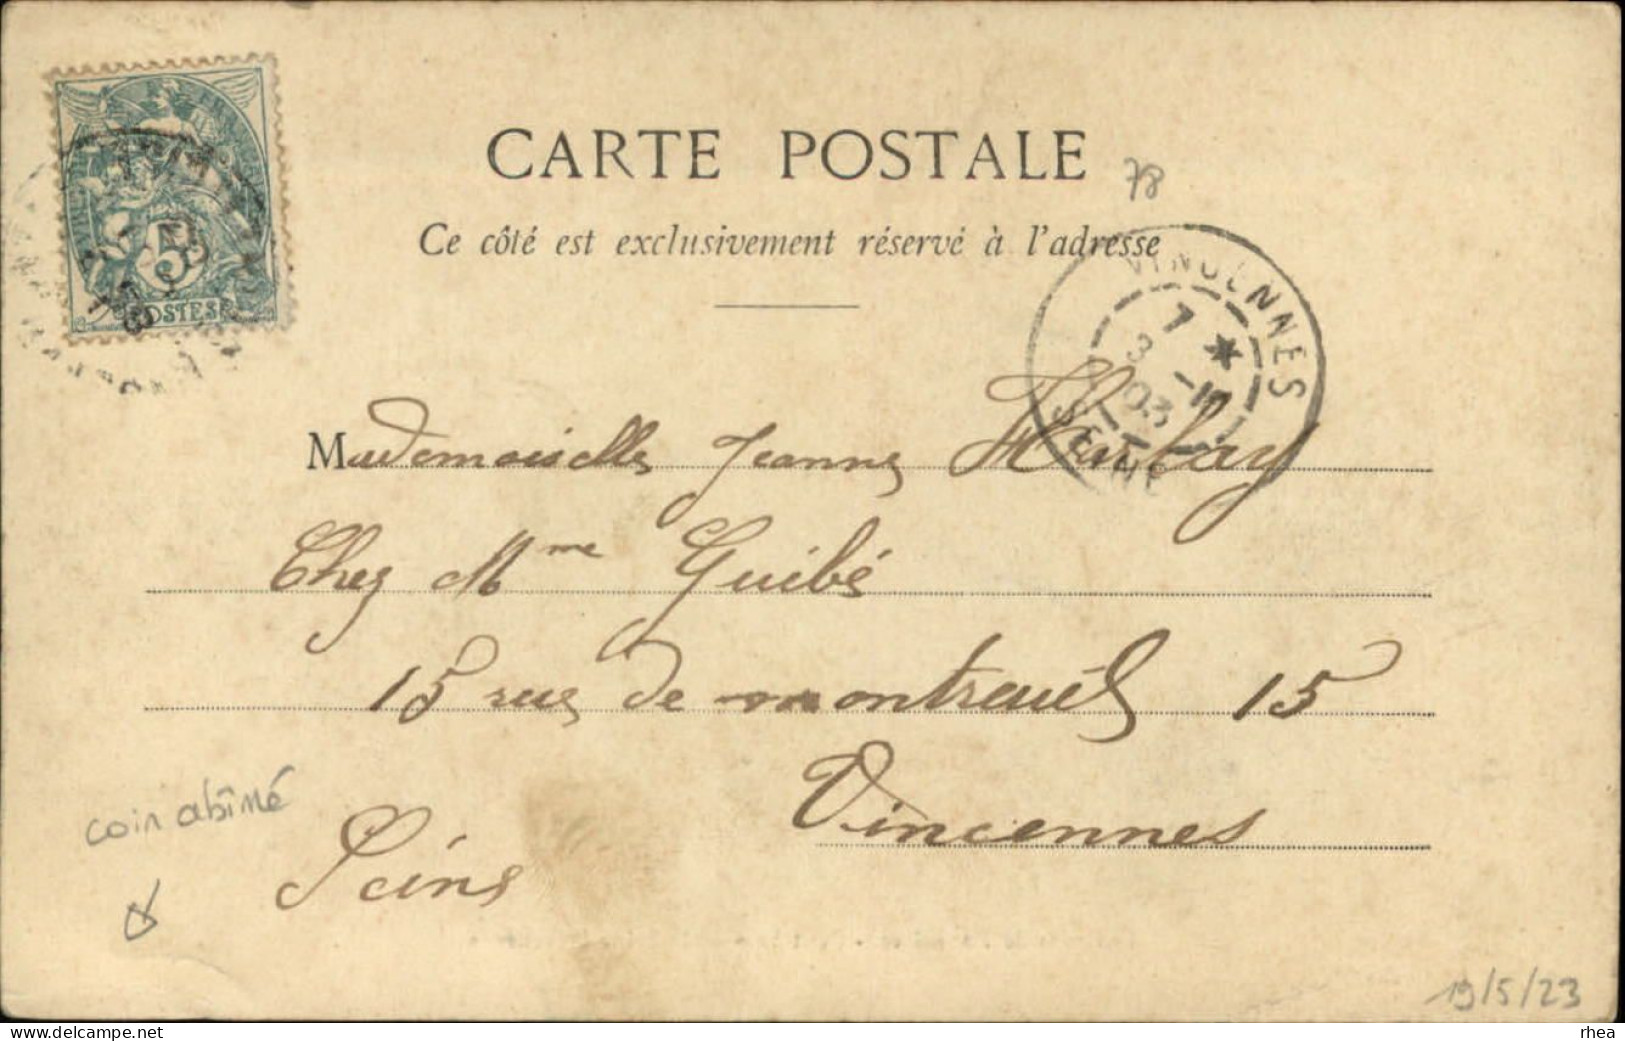 CARTE POSTALE
78
Ce côté est exclusivement réservé à l'adresse
5
POSTES
VINCENNES
7 *
3 -11
03
SEINE
Mademoiselle Jeanne
Chez Mme Guibé
15 rue de montreuil 15
Vincennes
Seine
coin abîmé
19/5/23
delcampe.net
rhea